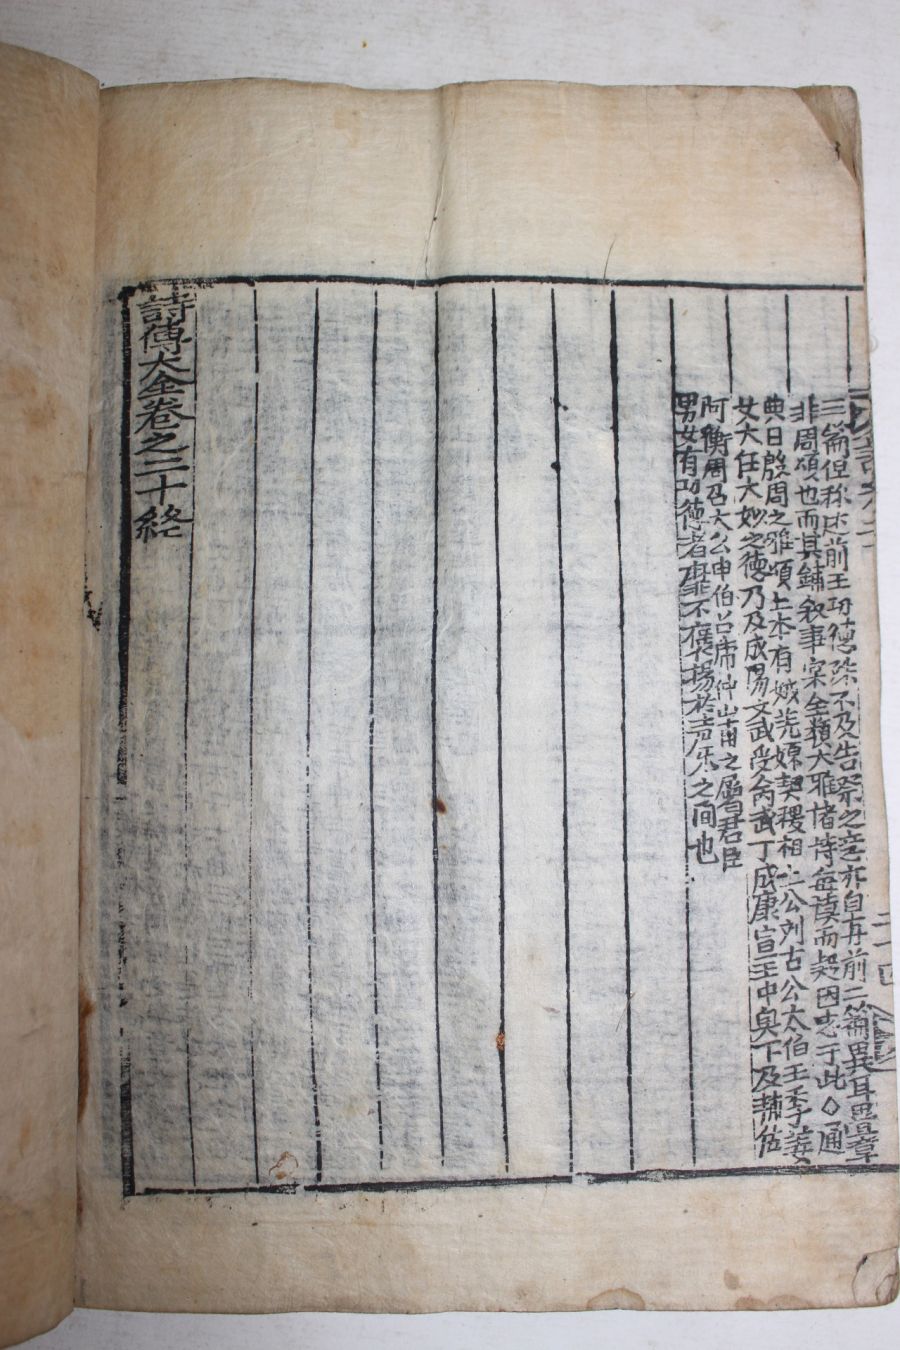 三篇但称述前王功德殊不及告祭之意亦自与前二篇異耳
非周頌也而其鋪叙事実全類大雅諸詩每讀而疑因志于此○通
典曰殷周之雅頌上本有娀羌嫄契稷相土公刘古公太伯王季姜
女大任大姒之德乃及成湯文武受命武丁成康宣王中興下及輔佐
阿衡周召太公申伯召虎仲山甫之屬君臣
男女有功德者靡不褒揚於声乐之間也
詩傳大全卷之二十終